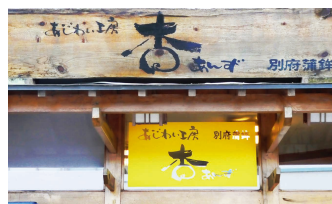 あじわい工房 杏 あんず 別府蒲鉾
あじわい工房 別府蒲鉾
杏 あんず